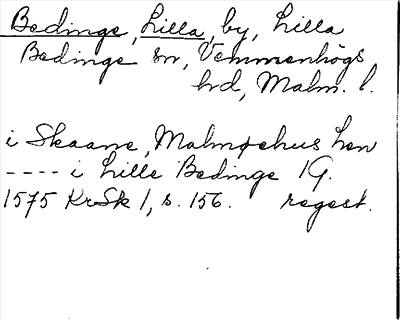 Bedinge, Lilla, by, Lilla
Bedinge sn, Vemmenhögs
hrd, Malm. l.
i Skaane, Malmøehus len
---- i Lille Bedinge 1G.
1575 KrSk 1, s. 156. regest.